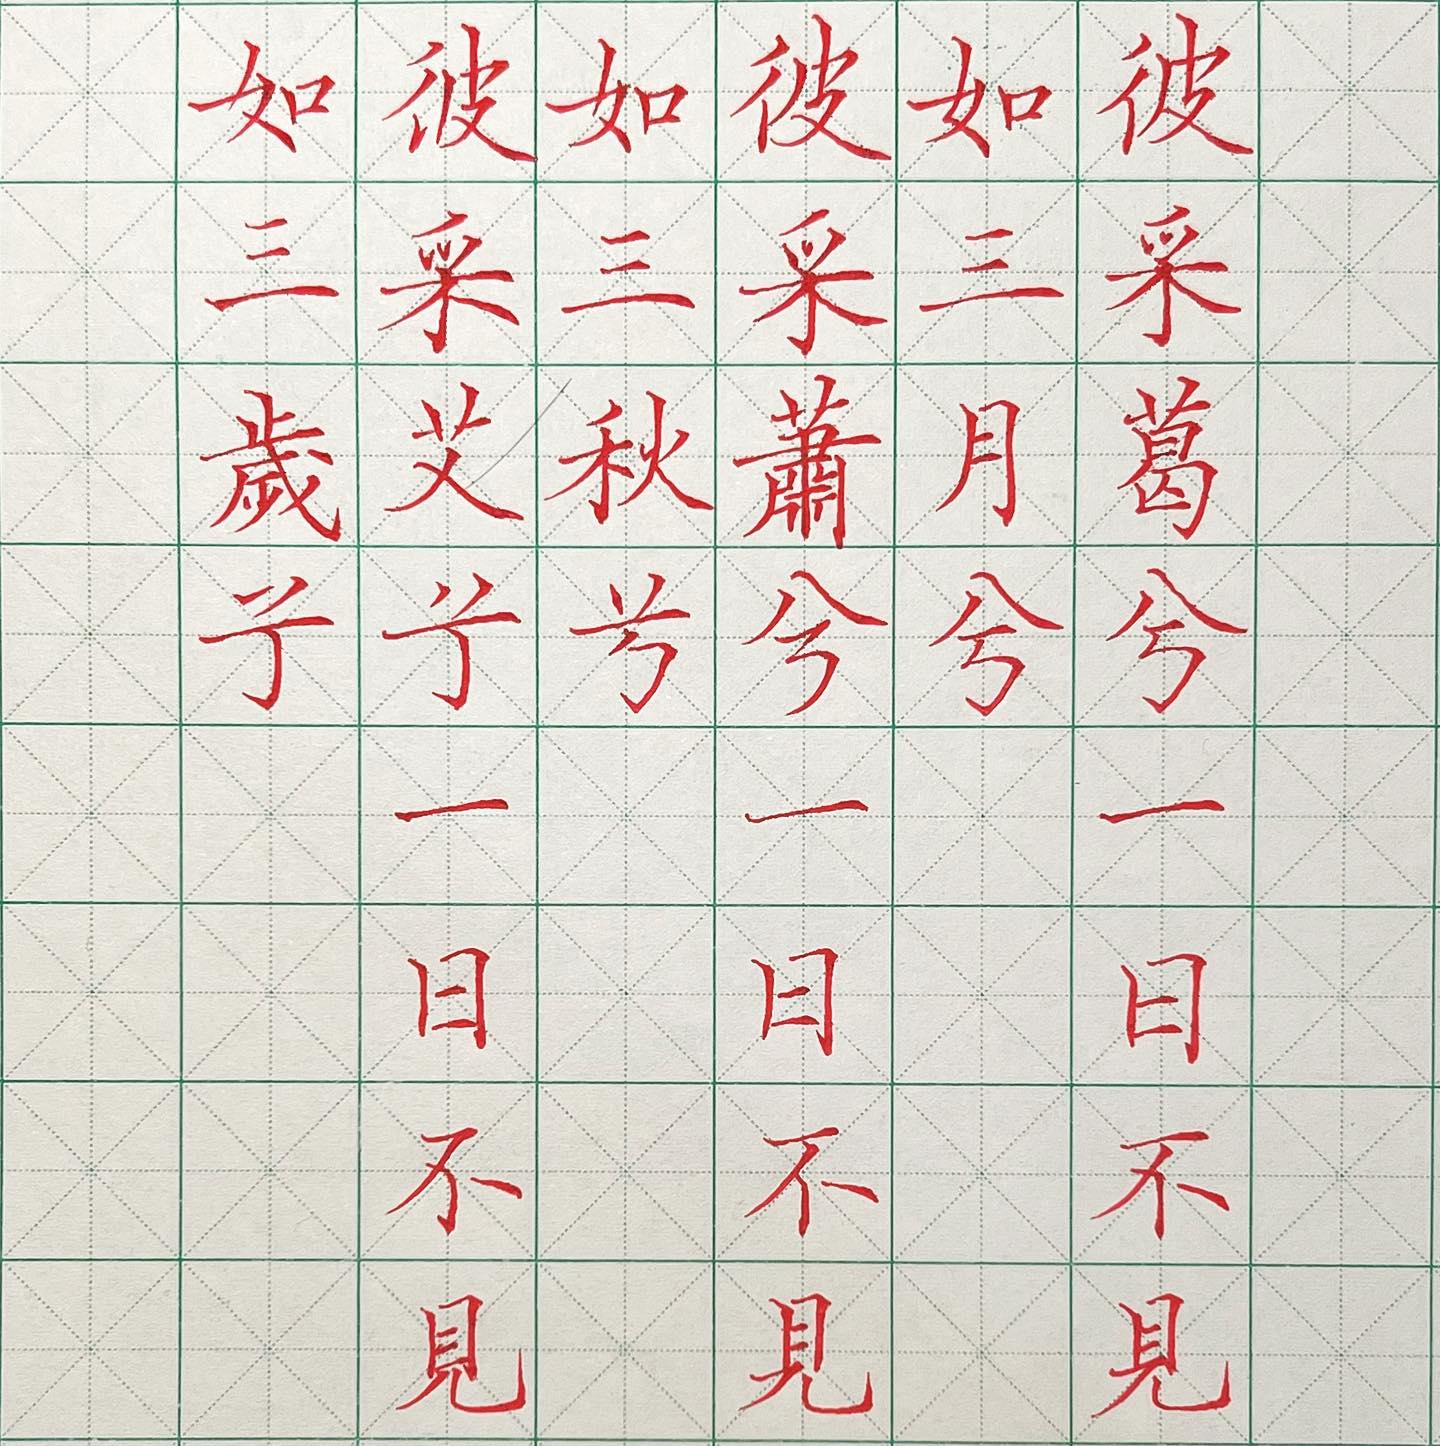 彼采葛兮一日不見
如三月兮
彼采蕭兮一日不見
如三秋兮
彼采艾兮一日不見
如三歲兮